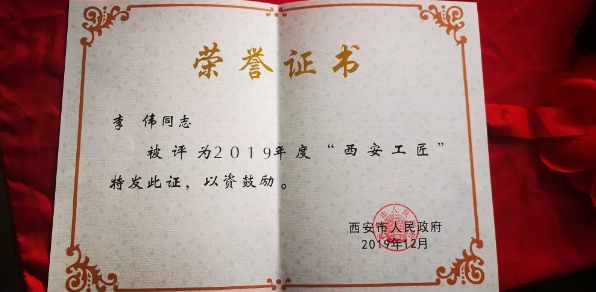 荣誉证书
李 伟同志
被评为2019年度“西安工匠”
特发此证，以资鼓励。
西安市人民政府
2019年12月